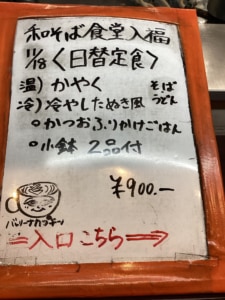 和そば食堂入福
11/18〈日替定食〉
温)かやく そば
冷)冷やしたぬき風 うどん
○かつおふりかけごはん
○小鉢 2品付
¥900.-
バリーナカプキッ
⇒入口こちら→